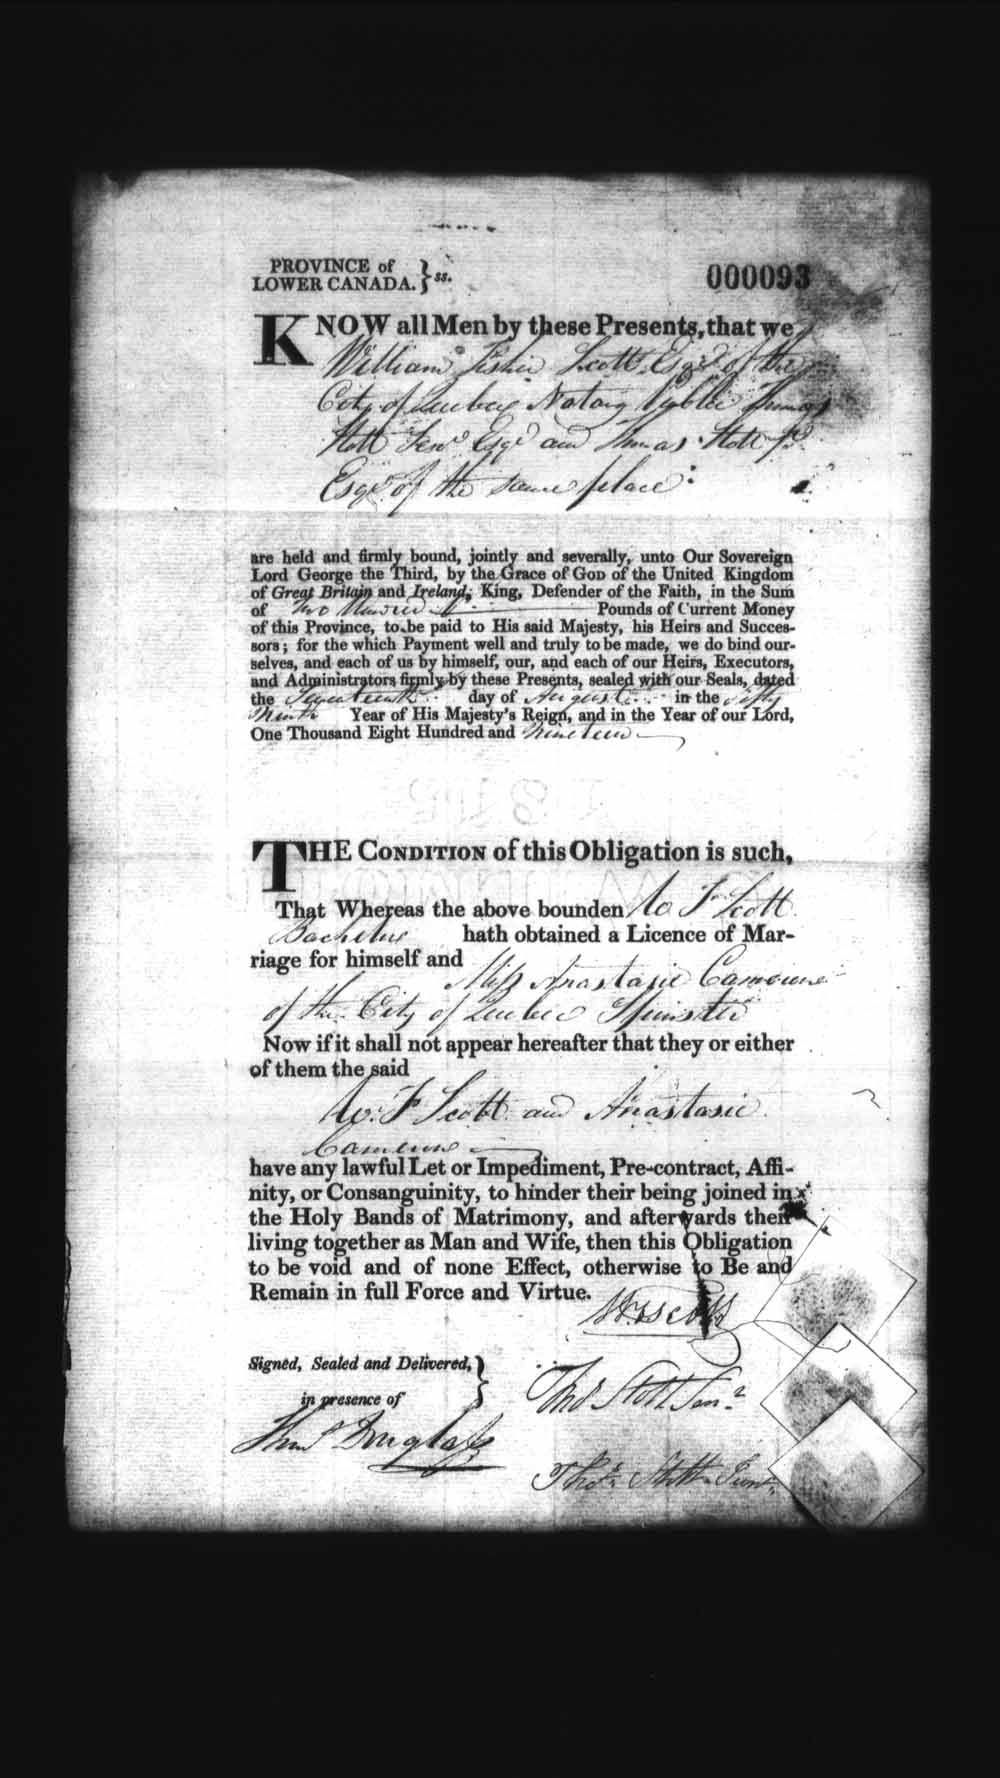 PROVINCE of
LOWER CANADA. } ss.
000093
KNOW all Men by these Presents, that we
William Fisher Scott Esqr. of the
City of Quebec Notary Public Thomas
Stott Senr. Esqr. and Thomas Stott Jr.
Esqr. of the same place
are held and firmly bound, jointly and severally, unto Our Sovereign
Lord George the Third, by the Grace of GOD of the United Kingdom
of Great Britain and Ireland, King, Defender of the Faith, in the Sum
of Two Hundred Pounds of Current Money
of this Province, to be paid to His said Majesty, his Heirs and Succes-
sors; for the which Payment well and truly to be made, we do bind our-
selves, and each of us by himself, our, and each of our Heirs, Executors,
and Administrators firmly by these Presents, sealed with our Seals, dated
the day of August in the fifty
Ninth Year of His Majesty's Reign, and in the Year of our Lord,
One Thousand Eight Hundred and Nineteen
THE CONDITION of this Obligation is such,
That Whereas the above bounden W F Scott
Bachelor hath obtained a Licence of Mar-
riage for himself and
Miss Anastasie
of the City of Quebec Spinster
Now if it shall not appear hereafter that they or either
of them the said
W. F Scott and Anastasie
have any lawful Let or Impediment, Pre-contract, Affi-
nity, or Consanguinity, to hinder their being joined in
the Holy Bands of Matrimony, and afterwards their
living together as Man and Wife, then this Obligation
to be void and of none Effect, otherwise to Be and
Remain in full Force and Virtue.
WFScott
Signed, Sealed and Delivered,
in presence of
Thos Stott Senr.
Thos. Douglass
Thos. Stott Junr.